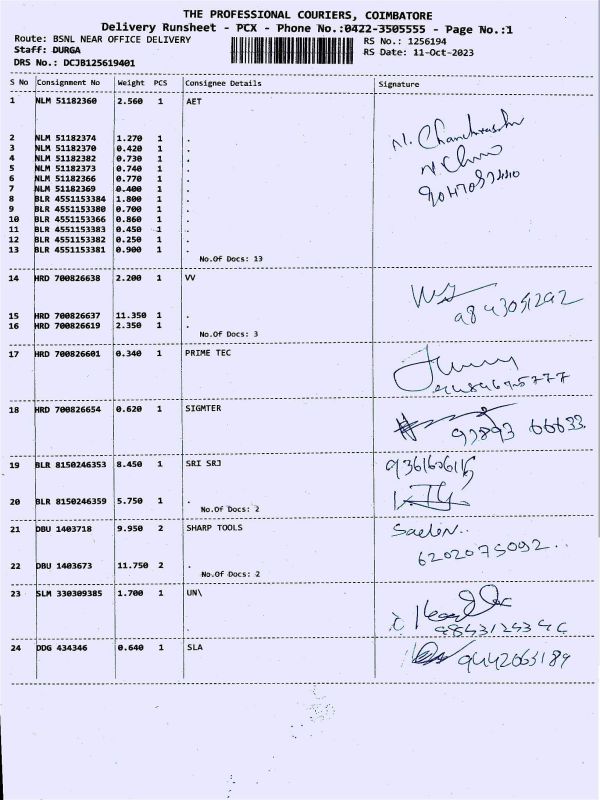 THE PROFESSIONAL COURIERS, COIMBATORE
Delivery Runsheet - PCX - Phone No.:0422-3505555 - Page No.:1
Route: BSNL NEAR OFFICE DELIVERY RS No.: 1256194
Staff: DURGA RS Date: 11-Oct-2023
DRS No.: DCJB125619401
S No Consignment No Weight PCS Consignee Details Signature
1 NLM 51182360 2.560 1 AET
2 NLM 51182374 1.270 1 .
3 NLM 51182370 0.420 1 .
4 NLM 51182382 0.730 1 .
5 NLM 51182373 0.740 1 .
6 NLM 51182366 0.770 1 .
7 NLM 51182369 0.400 1 .
8 BLR 4551153384 1.800 1 .
9 BLR 4551153380 0.700 1 .
10 BLR 4551153366 0.860 1 .
11 BLR 4551153383 0.450 1 .
12 BLR 4551153382 0.250 1 .
13 BLR 4551153381 0.900 1 .
No.Of Docs: 13
14 HRD 700826638 2.200 1 VV
9843051292
15 HRD 700826637 11.350 1 .
16 HRD 700826619 2.350 1 .
No.Of Docs: 3
17 HRD 700826601 0.340 1 PRIME TEC
18 HRD 700826654 0.620 1 SIGMTER
93893 66633
19 BLR 8150246353 8.450 1 SRI SRJ
20 BLR 8150246359 5.750 1 .
No.Of Docs: 2
21 DBU 1403718 9.950 2 SHARP TOOLS
6202075092
22 DBU 1403673 11.750 2 .
No.Of Docs: 2
23 SLM 330309385 1.700 1 UN\
24 DDG 434346 0.640 1 SLA
9442063189